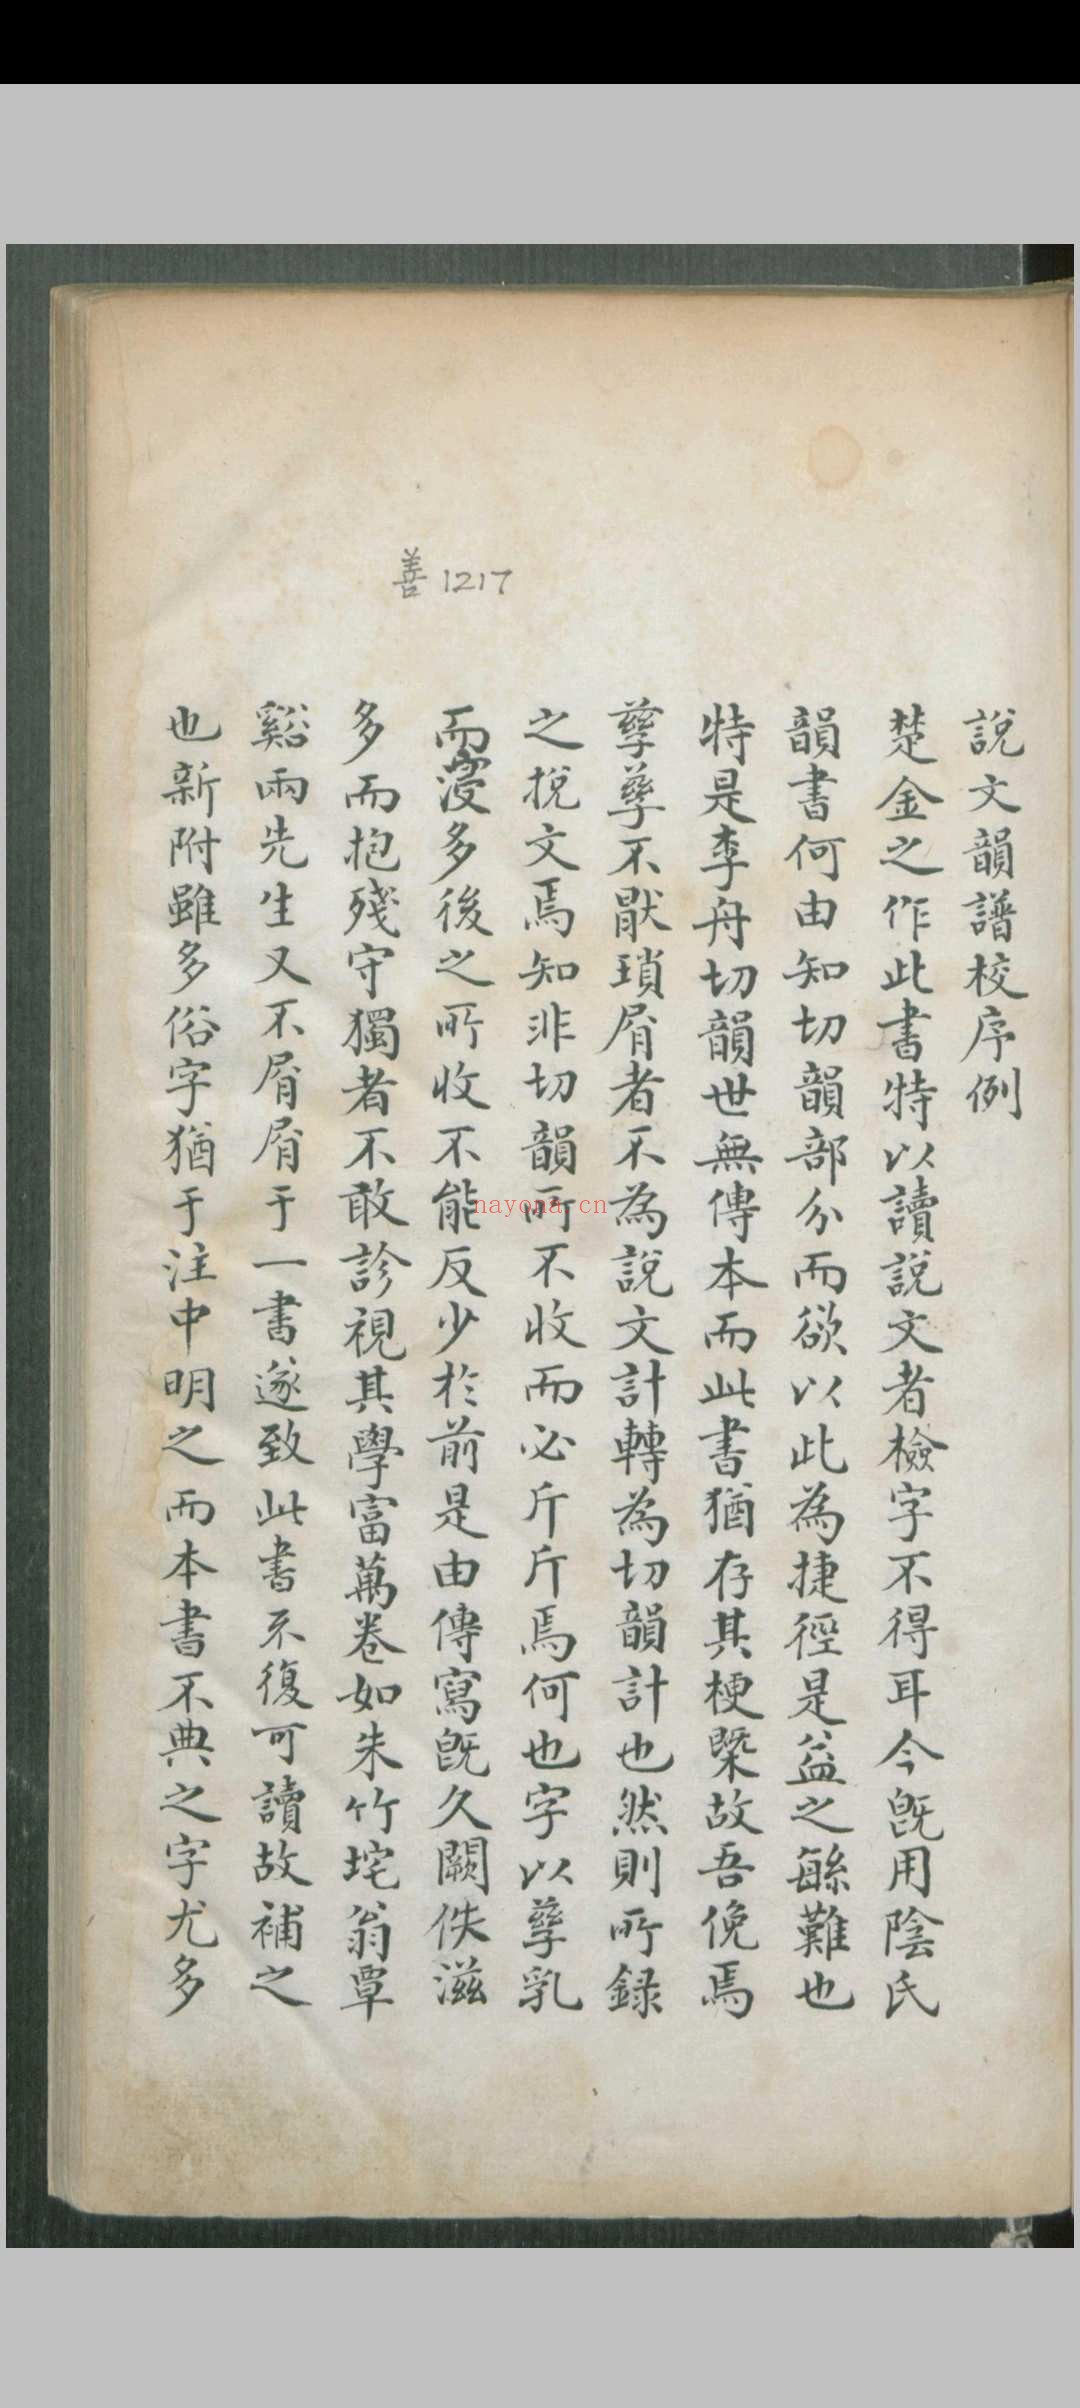 說文韻譜校序例
楚金之作此書特以讀說文者檢字不得耳今既用陰氏
韻書何由知切韻部分而欲以此為捷徑是益之緐難也
特是李舟切韻世無傳本而此書猶存其梗槩故吾俛焉
孳孳不猒瑣屑者不為說文計轉為切韻計也然則所錄
之挩文焉知非切韻所不收而必斤斤焉何也字以孳乳
而寖多後之所收不能反少於前是由傳寫既久闕佚滋
多而抱殘守獨者不敢診視其學富萬卷如朱竹垞翁覃
谿兩先生又不屑屑于一書遂致此書不復可讀故補之
也新附雖多俗字猶于注中明之而本書不典之字尤多
善1217
nayona.cn